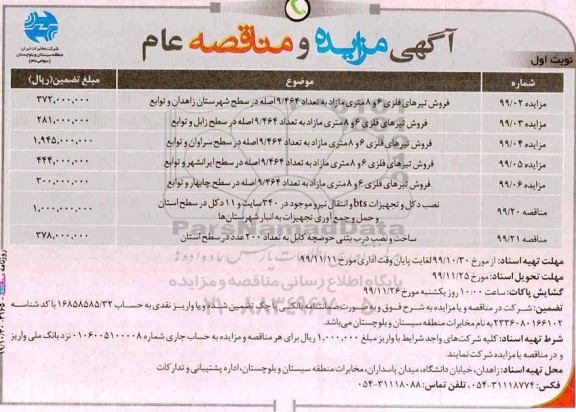 آگهی مزایده و مناقصه عام
شرکت مخابرات ایران
منطقه سیستان و بلوچستان
(سهامی عام)
نوبت اول
شماره موضوع مبلغ تضمین(ریال)
مزایده ۹۹/۰۲ فروش تیرهای فلزی ۶ و ۸ متری مازاد به تعداد ۹/۴۶۴ اصله در سطح شهرستان زاهدان و توابع ۳۷۲,۰۰۰,۰۰۰
مزایده ۹۹/۰۳ فروش تیرهای فلزی ۶ و ۸ متری مازاد به تعداد ۹/۴۶۴ اصله در سطح زابل و توابع ۲۸۱,۰۰۰,۰۰۰
مزایده ۹۹/۰۴ فروش تیرهای فلزی ۶ و ۸ متری مازاد به تعداد ۹/۴۶۴ اصله در سطح سراوان و توابع ۱,۹۴۵,۰۰۰,۰۰۰
مزایده ۹۹/۰۵ فروش تیرهای فلزی ۶ و ۸ متری مازاد به تعداد ۹/۴۶۴ اصله در سطح ایرانشهر و توابع ۴۴۴,۰۰۰,۰۰۰
مزایده ۹۹/۰۶ فروش تیرهای فلزی ۶ و ۸ متری مازاد به تعداد ۹/۴۶۴ اصله در سطح چابهار و توابع ۳۰۰,۰۰۰,۰۰۰
مناقصه ۹۹/۲۰ نصب دکل و تجهیزات bts و انتقال نیرو موجود در ۳۴۰ سایت و ۱۱ دکل در سطح استان ۱,۰۰۰,۰۰۰,۰۰۰
و حمل و جمع آوری تجهیزات به انبار شهرستان‌ها
مناقصه ۹۹/۲۱ ساخت و نصب درب بتنی حوضچه کابل به تعداد ۲۰۰ عدد در سطح استان ۳۷۸,۰۰۰,۰۰۰
مهلت تهیه اسناد: از مورخ ۹۹/۱۰/۳۰ لغایت پایان وقت اداری مورخ ۹۹/۱۱/۱۱
مهلت تحویل اسناد: مورخ ۹۹/۱۱/۲۵
گشایش پاکات: ساعت ۱۰:۰۰ روز یکشنبه مورخ ۹۹/۱۱/۲۶
تضمین: شرکت در مناقصه و یا مزایده به شرح فوق و بصورت ضمانتنامه بانکی یا چک تضمین شده و یا واریز نقدی به حساب 16858585/32 با کد شناسه
۲۳۳۶۰۸۰۱۶۶۱۰۲ به نام مخابرات منطقه سیستان و بلوچستان می‌باشد.
شرط تهیه اسناد: کلیه شرکت‌های واجد شرایط با واریز مبلغ ۱,۰۰۰,۰۰۰ ریال برای هر مناقصه و مزایده به حساب جاری شماره ۰۱۰۶۰۰۵۱۰۰۰۰۸ نزد بانک ملی واریز
و در مناقصه یا مزایده شرکت نمایند.
محل تهیه اسناد: زاهدان، خیابان دانشگاه، میدان پاسداران، مخابرات منطقه سیستان و بلوچستان، اداره پشتیبانی و تدارکات
فکس: ۳۱۱۱۸۷۷۴-۰۵۴ تلفن تماس: ۳۱۱۱۸۰۸۸-۰۵۴
ParsNamadData
پایگاه اطلاع رسانی مناقصه و مزایده